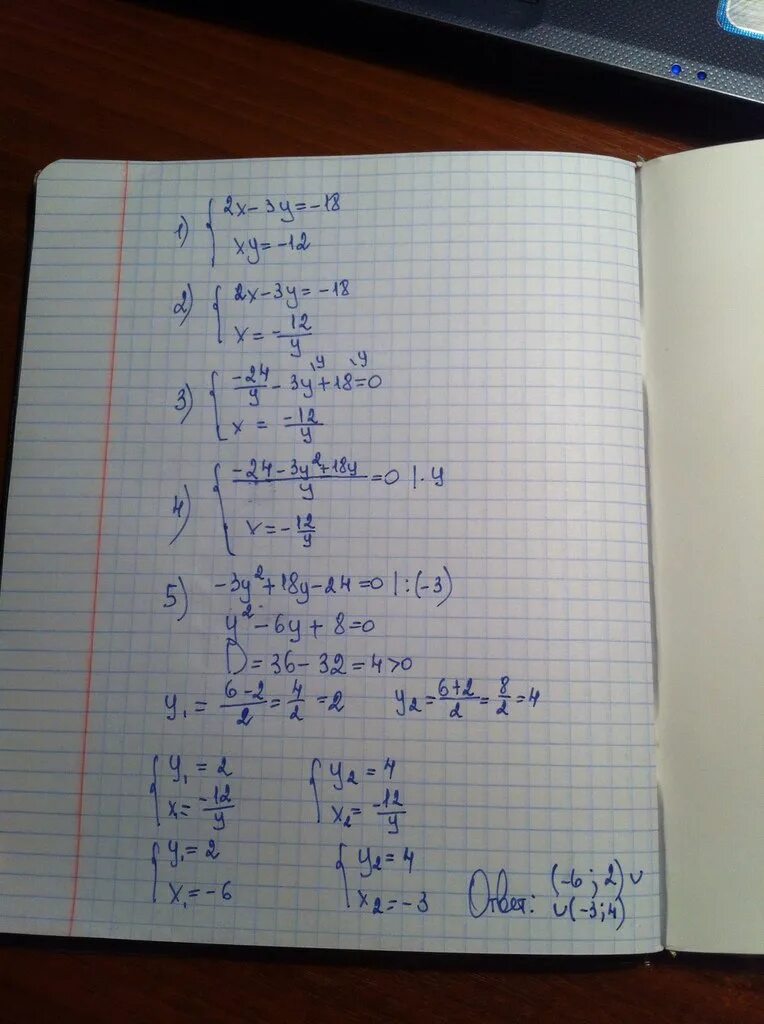 1) { 2x-3y=-18
xy=-12
2) { 2x-3y=-18
x=-12/y
3) { -24/y - 3y\y + 18\y = 0
x = -12/y
4) { (-24-3y²+18y)/y = 0 |·y
x=-12/y
5) -3y²+18y-24=0 |:(-3)
y²-6y+8=0
D=36-32=4>0
y₁ = (6-2)/2 = 4/2 = 2 y₂ = (6+2)/2 = 8/2 = 4
{ y₁ = 2 { y₂ = 4
x₁ = -12/y x₂ = -12/y
{ y₁ = 2 { y₂ = 4
x₁ = -6 x₂ = -3 Ответ: (-6; 2) ∪
∪(-3;4)